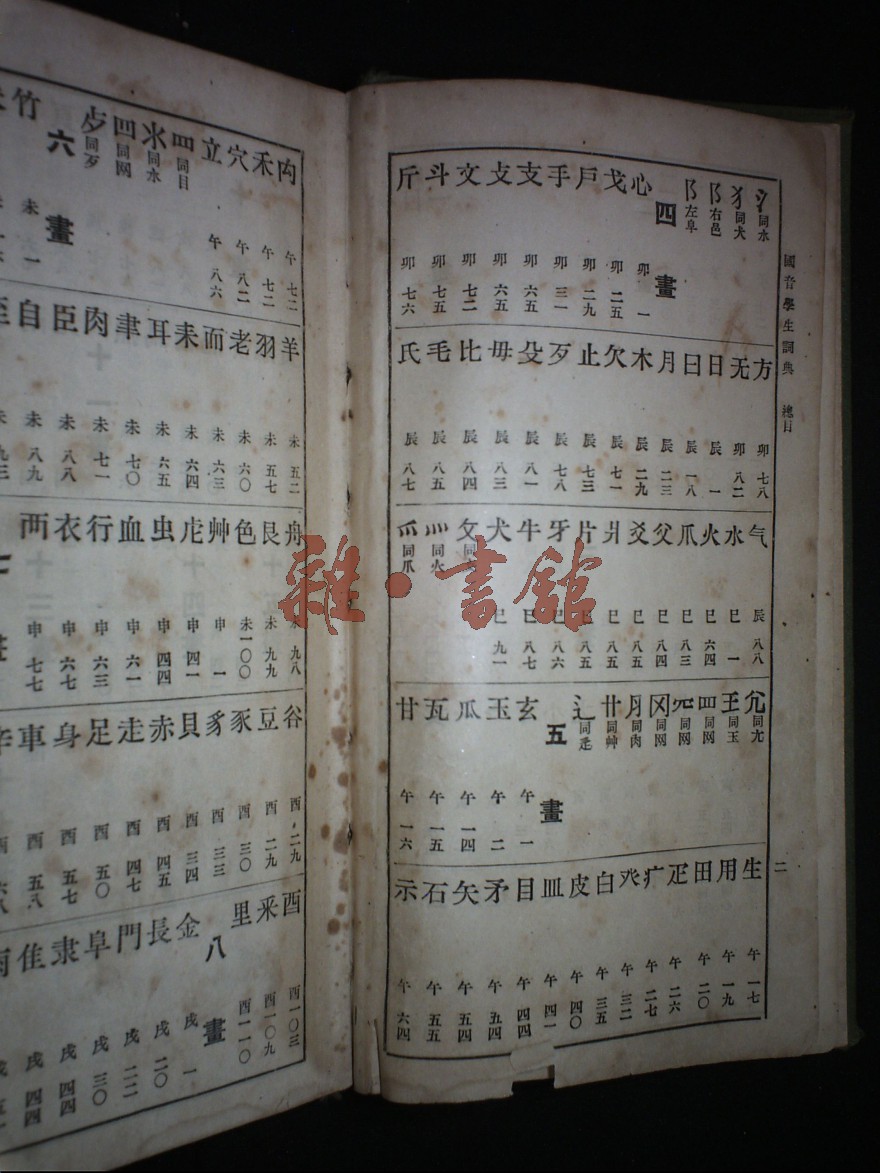 國音學生詞典 總目
二
氵同水
犭同犬
阝右邑
阝左阜
四畫
心 卯 一
戈 卯 二五
戶 卯 二九
手 卯 三一
支 卯 六五
攴 卯 六五
文 卯 七二
斗 卯 七五
斤 卯 七六
方 卯 七八
无 卯 八二
日 辰 一
曰 辰 一八
月 辰 二三
木 辰 二九
欠 辰 七一
止 辰 七三
歹 辰 七八
殳 辰 八一
毋 辰 八三
比 辰 八四
毛 辰 八五
氏 辰 八七
气 辰 八八
水 巳 一
火 巳 六四
爪 巳 八三
父 巳 八四
爻 巳 八五
爿 巳 八五
片 巳 八五
牙 巳 八六
牛 巳 八七
犬 巳 九一
攵 同
灬同火
爫同爪
尣同尢
王同玉
罒同网
同网
同网
月同肉
同艸
辶同辵
五畫
玄 午 一
玉 午 二
瓜 午 一四
瓦 午 一五
甘 午 一六
生 午 一七
用 午 一九
田 午 二〇
疋 午 二六
疒 午 二七
癶 午 三二
白 午 三五
皮 午 四〇
皿 午 四一
目 午 四四
矛 午 五四
矢 午 五四
石 午 五五
示 午 六四
禸 午 七二
禾 午 七二
穴 午 八二
立 午 八六
罒同目
氺同水
同网
歺同歹
六畫
竹 未 一
羊 未 五二
羽 未 五七
老 未 六〇
而 未 六三
耒 未 六四
耳 未 六五
聿 未 七〇
肉 未 七一
臣 未 八八
自 未 八九
至 未 九三
舟 未 九八
艮 未 九九
色 未 一〇〇
艸 申 一
虍 申 四一
虫 申 四四
血 申 六一
行 申 六三
衣 申 六七
襾 申 七七
七畫
谷 酉 二九
豆 酉 二九
豕 酉 三〇
豸 酉 三三
貝 酉 三四
赤 酉 四五
走 酉 四七
足 酉 五〇
身 酉 五七
車 酉 五八
辛 酉
酉 酉 一〇三
釆 酉 一〇九
里 酉 一一〇
八畫
金 戌 一
長 戌 二〇
門 戌 二二
阜 戌 三〇
隶 戌 四四
隹 戌 四四
雨 戌
雜·書館